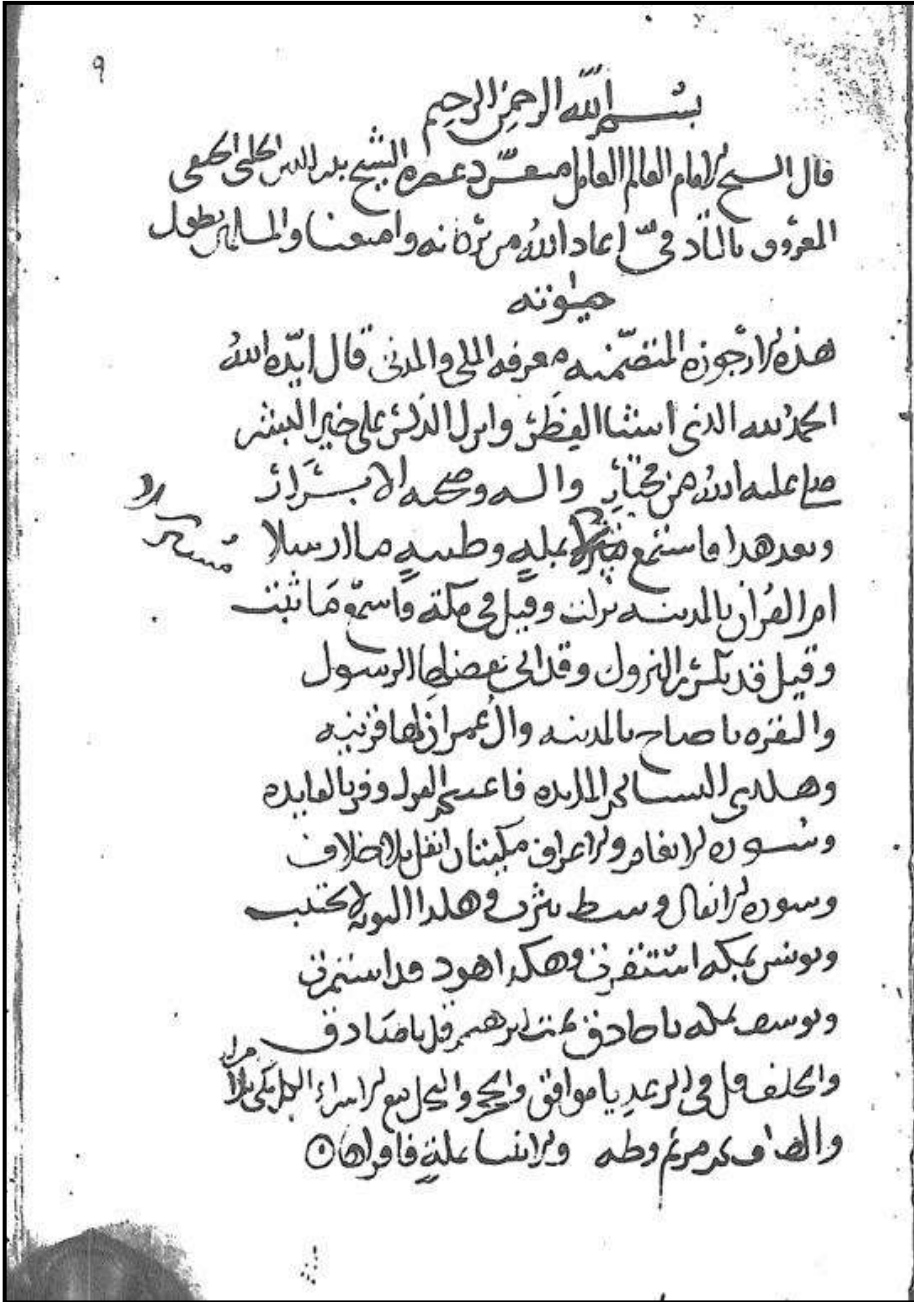 ٩
بسم الله الرحمن الرحيم
قال الشيخ الامام العالم العامل مفرد عصره الشيخ بدر الدين الحلبي الحنفي
المعروف بالتادفي اعاد الله من بركاته وامتعنا والمسلمين بطول
حيوته
هذه الارجوزه المتضمنه معرفه المكي والمدني قال ايده الله
الحمد لله الذي انشا الفطر وانزل الذكر على خير البشر
صلى عليه الله من مختار واله وصحبه الابرار
وبعد هذا فاستمع بمكة وطيبة ما ارسلا
ام القران بالمدينه نزلت وقيل في مكة فاسمع ما ثبت
وقيل قد تكرر النزول وقد اتى بفضلها الرسول
والبقره يا صاح بالمدينه وال عمران لها قرينه
وهكذى النسا المايده فاعـ القول وفز بالفايده
وسوره الانعام والاعراف مكيتان انقل بلا خلاف
وسوره الانفال وسط يثرب وهكذا التوبة
ويونس بمكه استقرت وهكذا هود قد استمرت
ويوسف بمكه يا حاذق ابرهيم قل يا صادق
والخلف قل في الرعد يا موافق والحجر والنحل مع الاسراء الكل مكي بلا مرا
والكهف مريم وطه والانبيا بمكة فاقراها